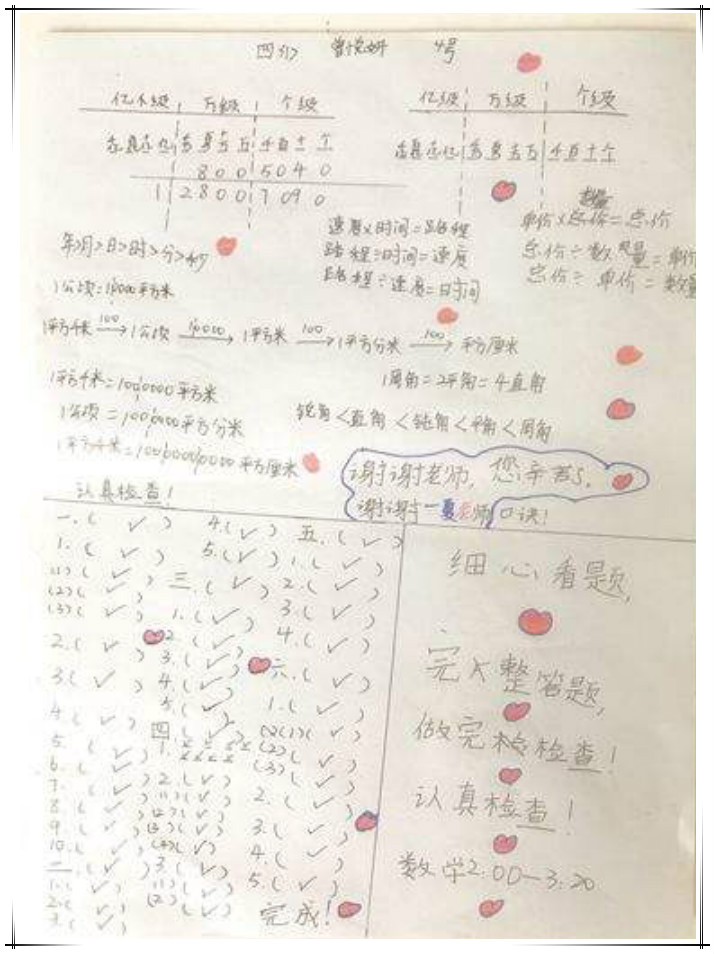 四(1) 4号
亿级 万级 个级
亿级 万级 个级
千百十个
千百十个
800 5040
1 2800 7090
速度×时间=路程
路程÷时间=速度
路程÷速度=时间
数量
单价×总价=总价
总价÷数量=单价
总价÷单价=数量
年>月>日>时>分>秒
1公顷=10000平方米
1平方千米 100 1公顷 10000 1平方米 100 1平方分米 100 平方厘米
1平方千米=1000000平方米
1周角=2平角=4直角
1公顷=1000000平方分米
锐角<直角<钝角<平角<周角
1平方千米=10000000000平方厘米
谢谢老师,您辛苦了。
谢谢夏老师口诀!
认真检查!
一.(✓) 4.(✓) 五.(✓)
1.(✓) 5.(✓) 1.(✓)
(1)(✓) 三.(✓) 2.(✓)
(2)(✓) 1.(✓) 3.(✓)
(3)(✓) 2.(✓) 4.(✓)
2.(✓) 3.(✓) 六.(✓)
3.(✓) 4.(✓) 1.(✓)
4.(✓) 5.(✓) 2(1)(✓)
5.(✓) 四(✓) (2)(✓)
6.(✓) 1. (3)(✓)
7.(✓) 2.(✓) 2.(✓)
8.(✓) (1)(✓) 3.(✓)
9.(✓) (2)(✓) 4.(✓)
10.(✓) (3)(✓) 5.(✓)
二.(✓) (4)(✓)
1.(✓) 3.(✓)
2.(✓) (1)(✓)
3.(✓) (2)(✓)
完成!
细心看题,
完整答题,
做完检检查!
认真检查!
数学2:00—3:20